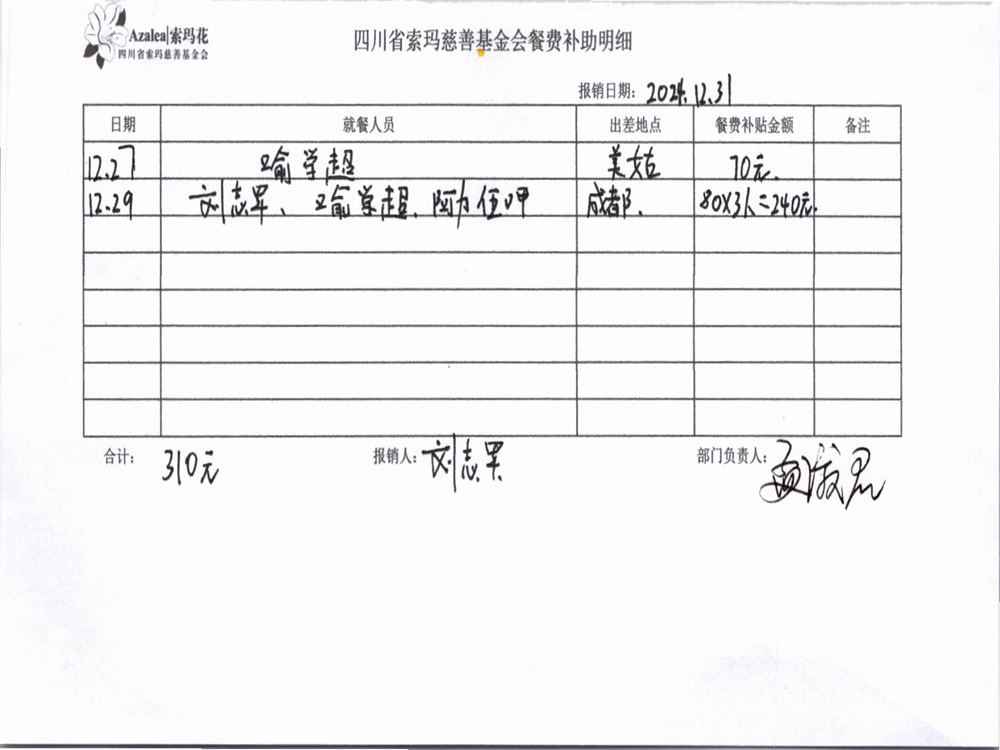 Azalea|索玛花
四川省索玛慈善基金会
四川省索玛慈善基金会餐费补助明细
报销日期: 2024.12.31
日期 就餐人员 出差地点 餐费补贴金额 备注
12.27 学超 美姑 70元.
12.29 刘志军、 学超. 阿力伍呷 成都. 80X3人=240元.
合计: 310元 报销人: 刘志军 部门负责人: